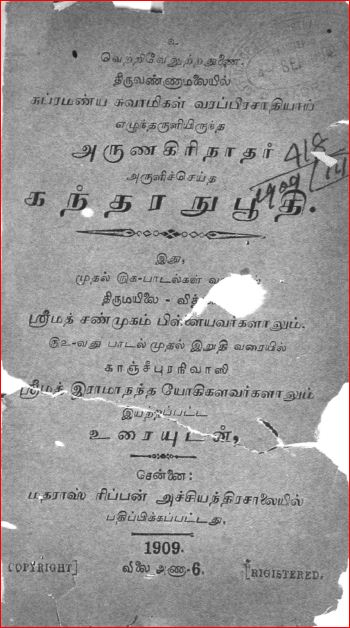 உ
வெற்றிவேலுற்றதுணை.
திருவண்ணாமலையில்
சுப்ரமண்ய சுவாமிகள் வரப்பிரசாதியாய்
எழுந்தருளியிருந்த
அருணகிரிநாதர்
அருளிச்செய்த
கந்தரநுபூதி.
இது,
முதல் டுக-பாடல்கள்
திருமயிலை - வித்
ஸ்ரீமத் சண்முகம் பிள்ளையவர்களாலும்,
டுஉ-வது பாடல் முதல் இறுதி வரையில்
காஞ்சீபுரநிவாஸி
ஸ்ரீமத் இராமாநந்த யோகிகளவர்களாலும்
இயற்றப்பட்ட
உரையுடன்,
சென்னை:
மதராஸ் ரிப்பன் அச்சியந்திரசாலையில்
பதிப்பிக்கப்பட்டது.
1909.
COPYRIGHT] விலை அணா-6. [RIGISTERED.